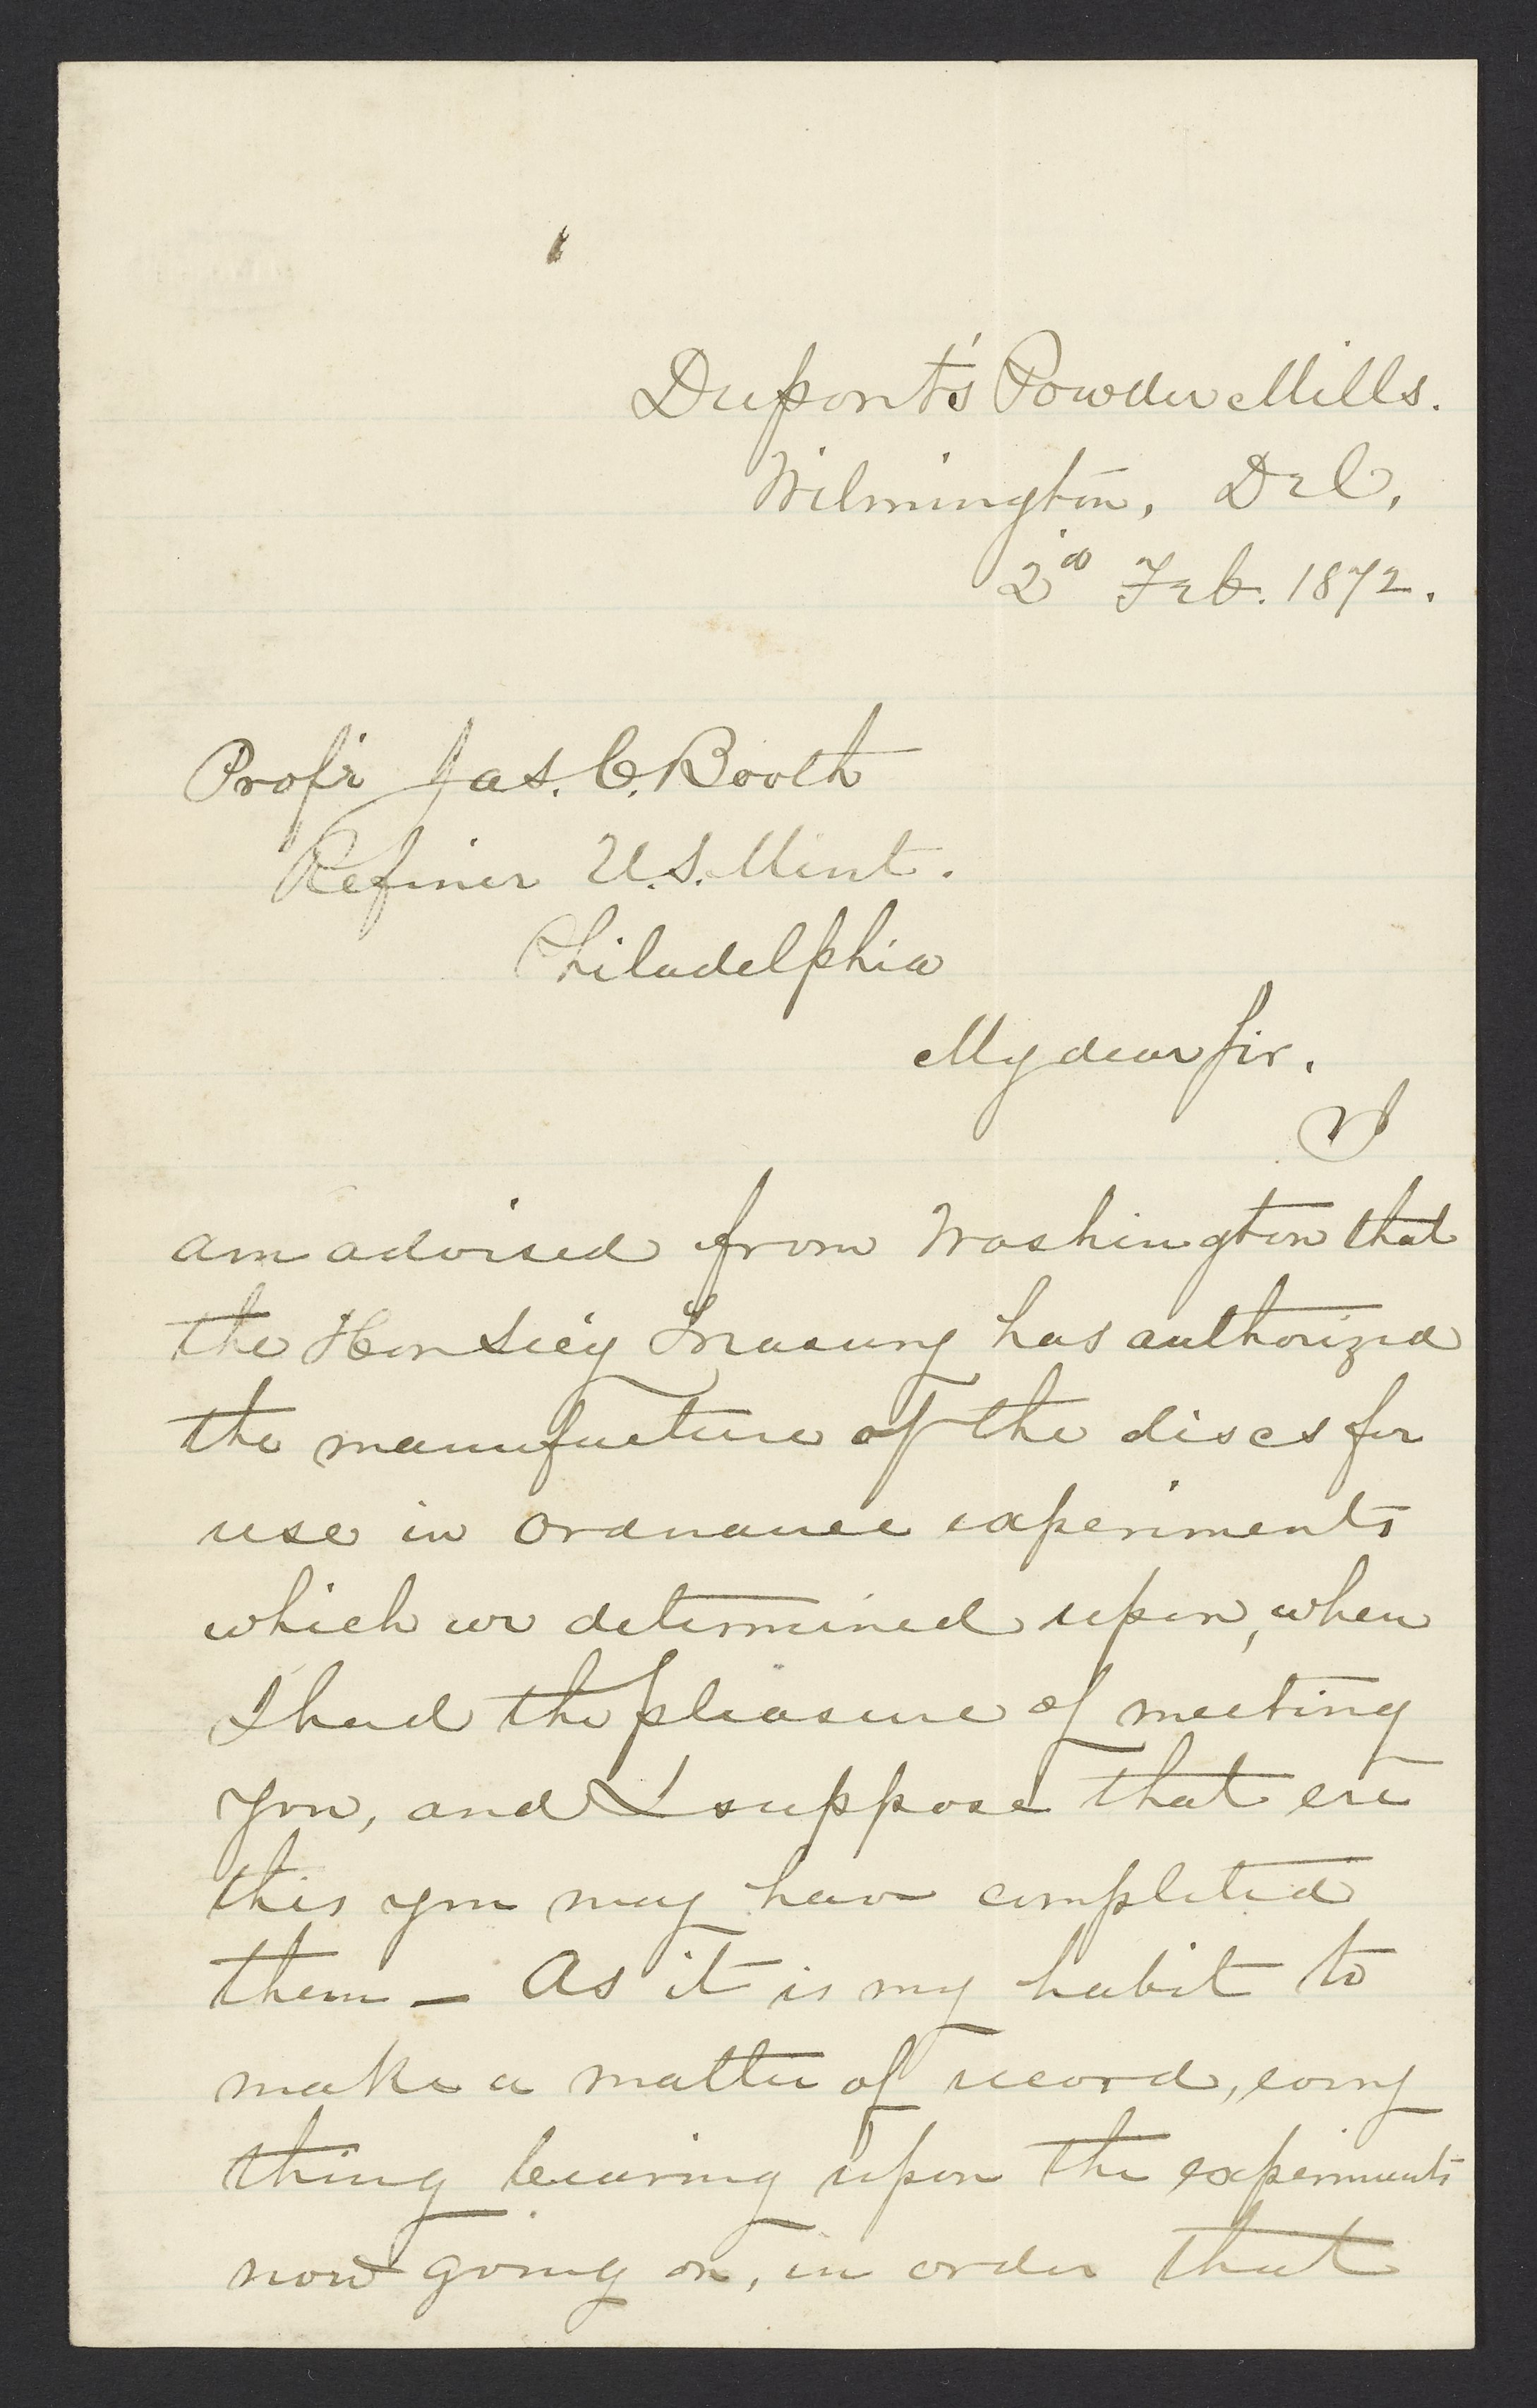 Dupont's Powder Mills.
Wilmington, Del,
2d Feb. 1872.
Prof'r Jas. C. Booth
Refiner U.S. Mint.
Philadelphia
My dear Sir.
I
am advised from Washington that
the Hon Sec'y Treasury has authorized
the manufacture of the discs for
use in ordnance experiments
which we determined upon, when
I had the pleasure of meeting
you, and I suppose that ere
this you may have completed
them — As it is my habit to
make a matter of record, every
thing bearing upon the experiments
now going on, in order that